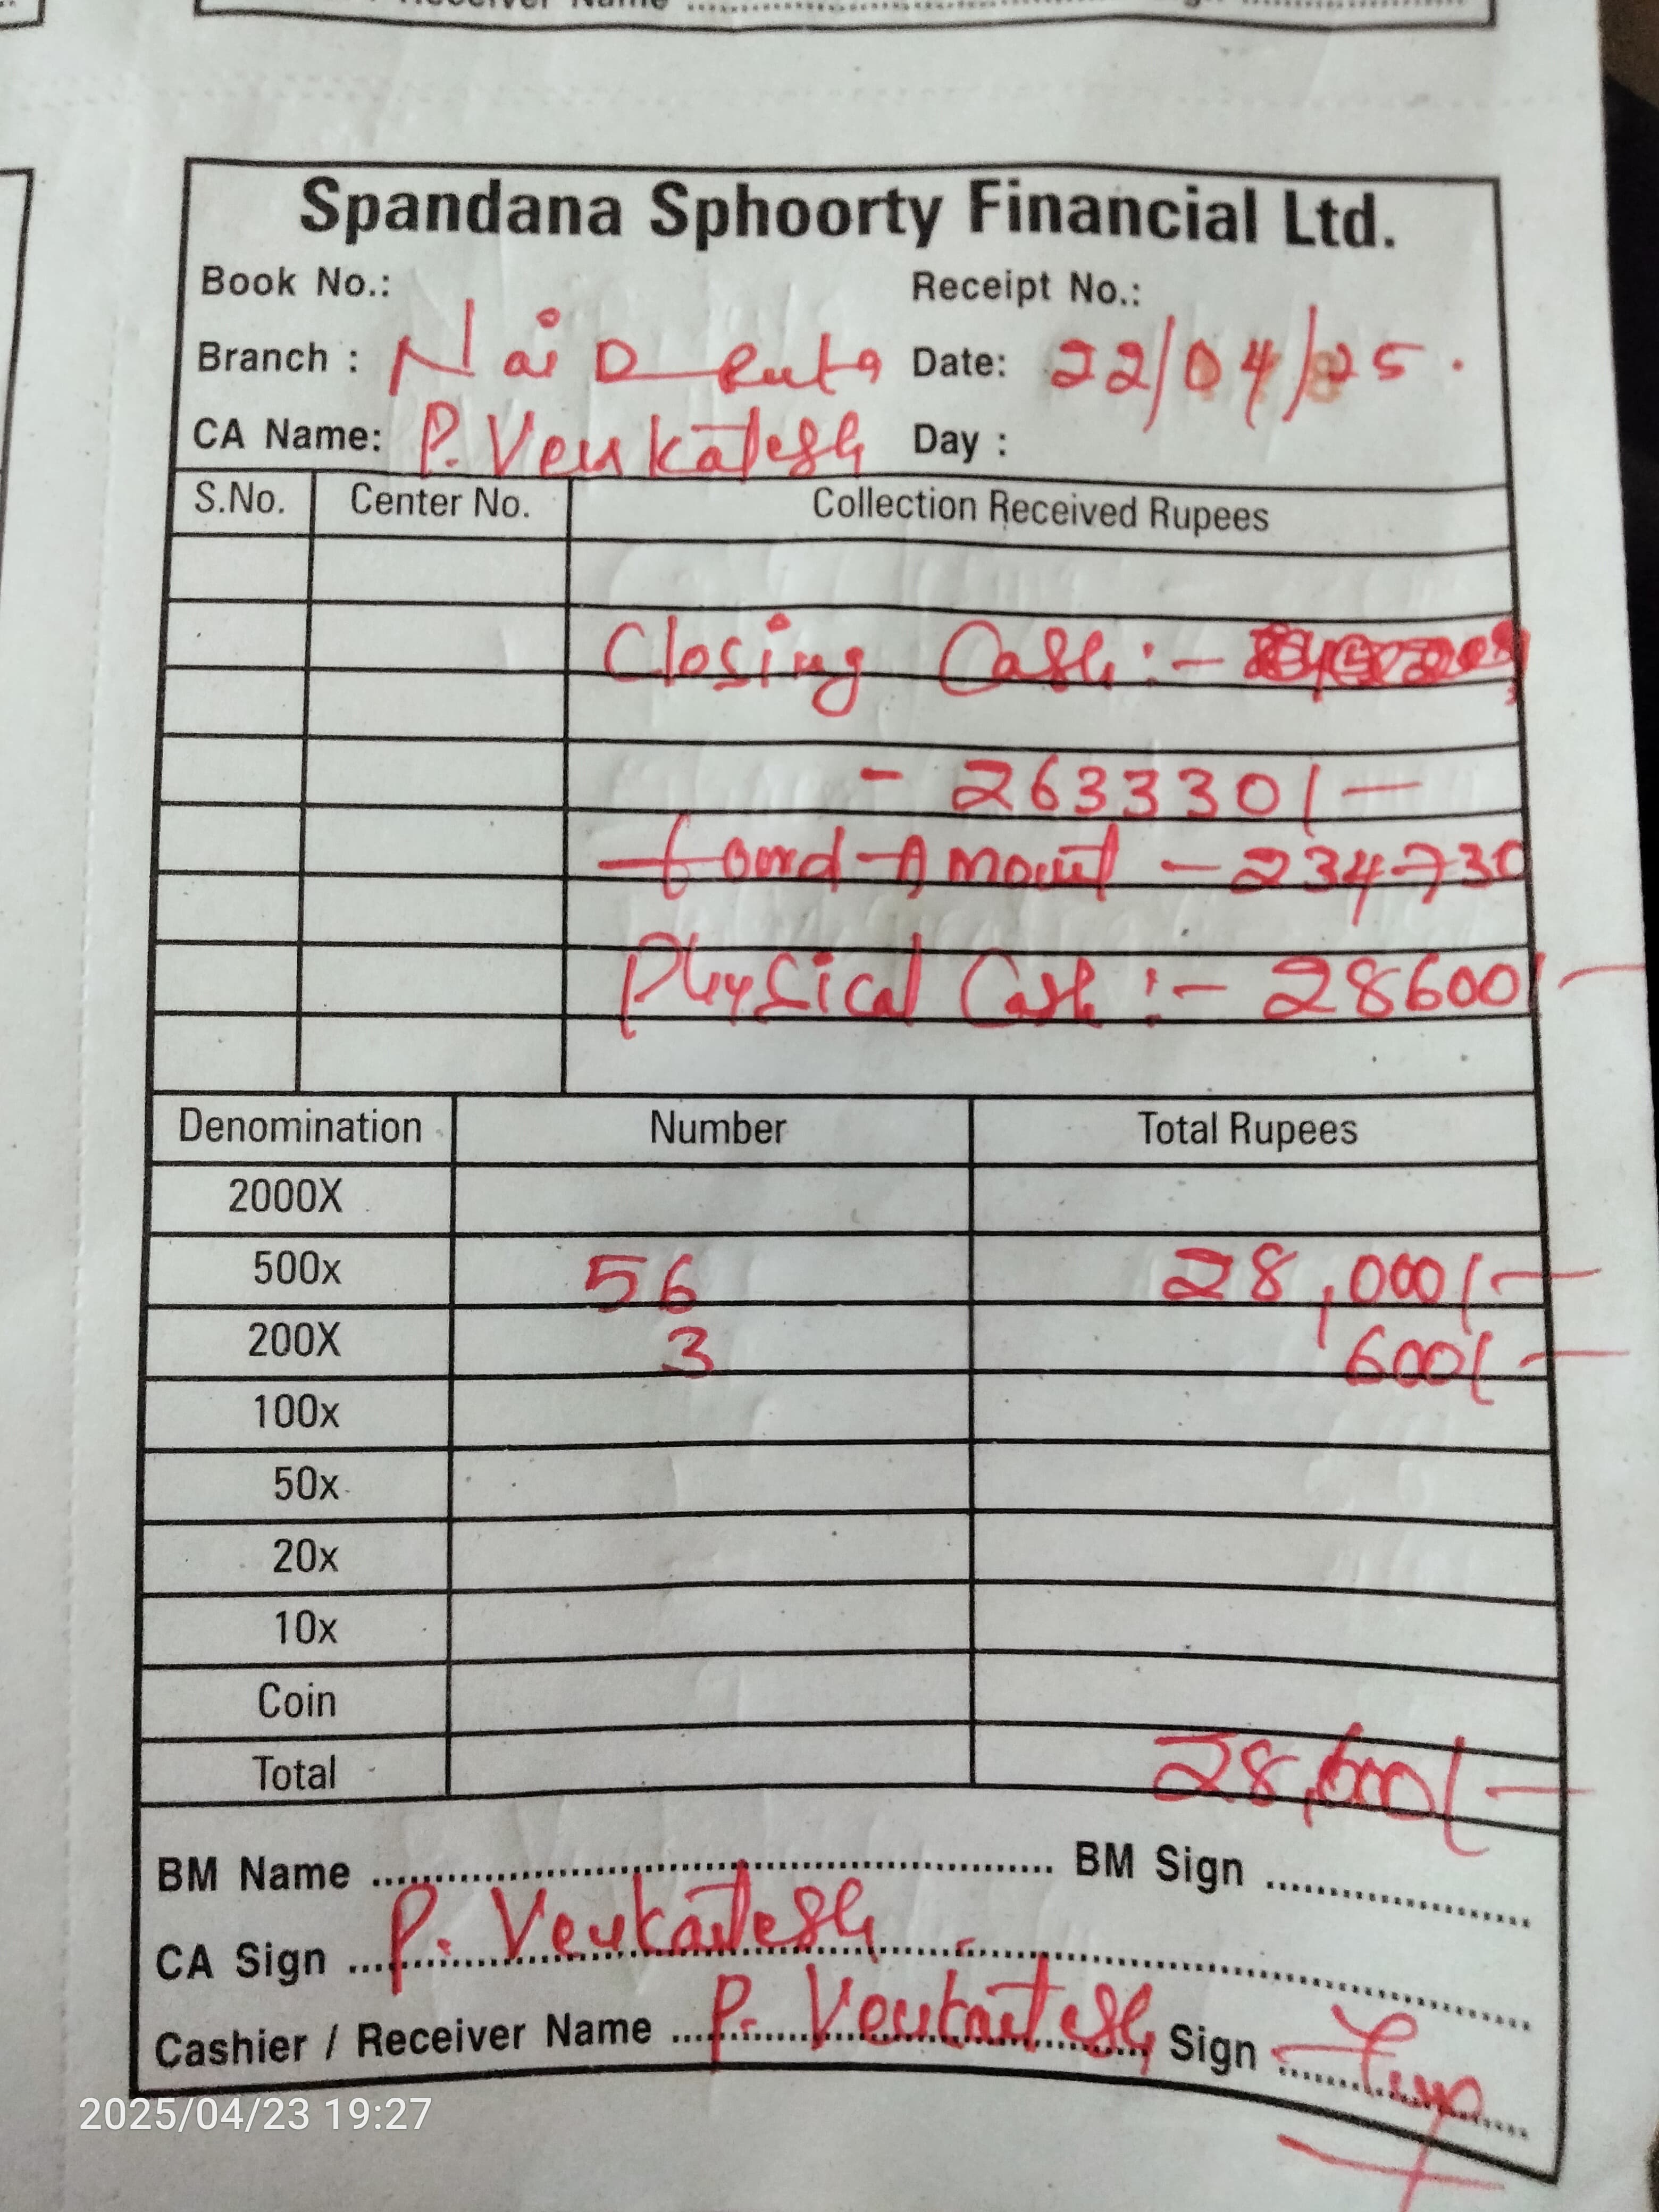 Receiver Name
Spandana Sphoorty Financial Ltd.
Book No.: Receipt No.:
Branch : Nai D Peuta Date: 22/04/25.
CA Name: P. Venkatesh Day :
S.No. Center No. Collection Received Rupees
Closing Cash:-
- 263330/-
Amount - 234730
Physical Cash :- 28600/-
Denomination Number Total Rupees
2000X
500x 56 28,000/-
200X 3 600/-
100x
50x
20x
10x
Coin
Total 28,600/-
BM Name .......... BM Sign ..........
CA Sign .......... P. Venkatesh
Cashier / Receiver Name .......... P. Venkatesh Sign ..........
2025/04/23 19:27